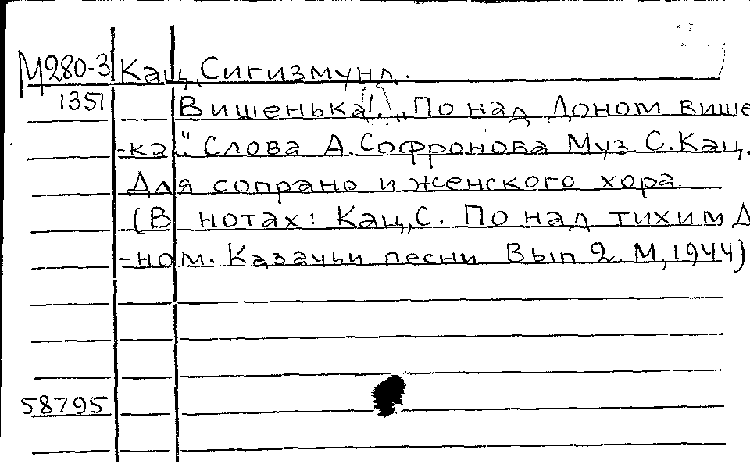 М280-3 Кац, Сигизмунд.
1351 Вишенька!. „По над Доном више
-ка". Слова А. Софронова Муз С. Кац.
Для сопрано и женского хора
(В нотах: Кац, С. По над тихим Д
-ном. Казачьи песни Вып 2 М, 1944)
58795